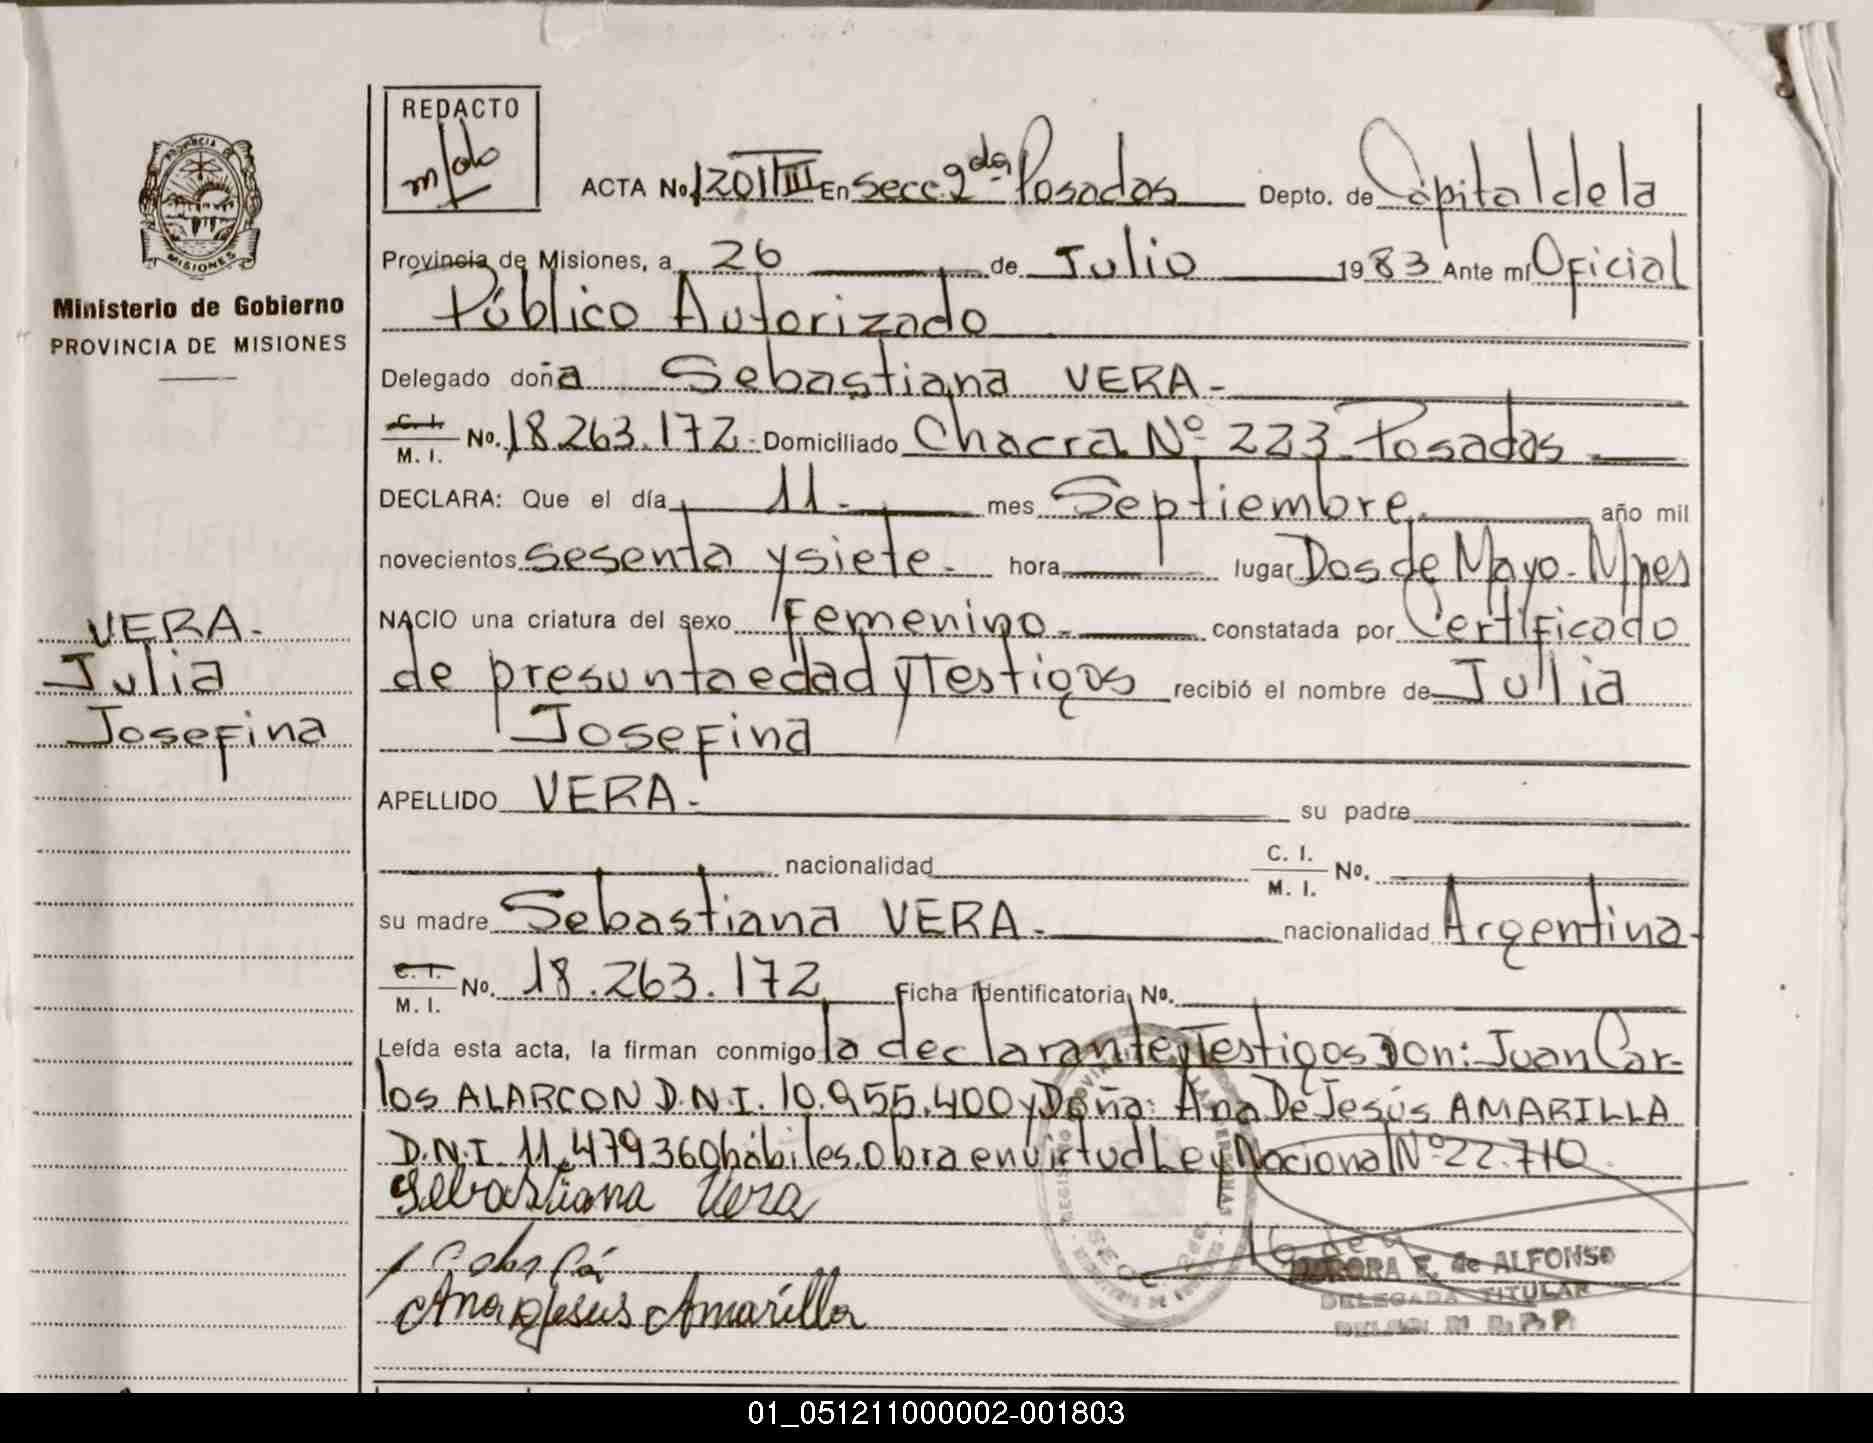 REDACTO
ACTA No. 1201 III En Secc. 2da Posadas Depto. de Capital de la
Provincia de Misiones, a 26 de Julio 1983 Ante mí Oficial
Público Autorizado
Delegado doña Sebastiana VERA -
C. I. M. I. No. 18.263.172 - Domiciliado Chacra Nº 223 - Posadas
DECLARA: Que el día 11 - mes Septiembre año mil
novecientos sesenta y siete - hora lugar Dos de Mayo - Mnes
NACIO una criatura del sexo Femenino - constatada por Certificado
de presunta edad y Testigos recibió el nombre de Julia
Josefina
APELLIDO VERA - su padre
nacionalidad C. I. M. I. No.
su madre Sebastiana VERA - nacionalidad Argentina -
C. I. M. I. No. 18.263.172 Ficha Identificatoria No.
Leída esta acta, la firman conmigo la declarante y Testigos Don: Juan Car-
los ALARCON D.N.I. 10.955.400 y Doña: Ana De Jesús AMARILLA
D.N.I. 11.479.360 hábiles. Obra en virtud Ley Nacional Nº 22.710.
Sebastiana Vera
Ana de Jesus Amarilla
AURORA E. de ALFONSO
DELEGADA TITULAR
PROVINCIA DE
MISIONES
Ministerio de Gobierno
PROVINCIA DE MISIONES
VERA -
Julia
Josefina
01_051211000002-001803